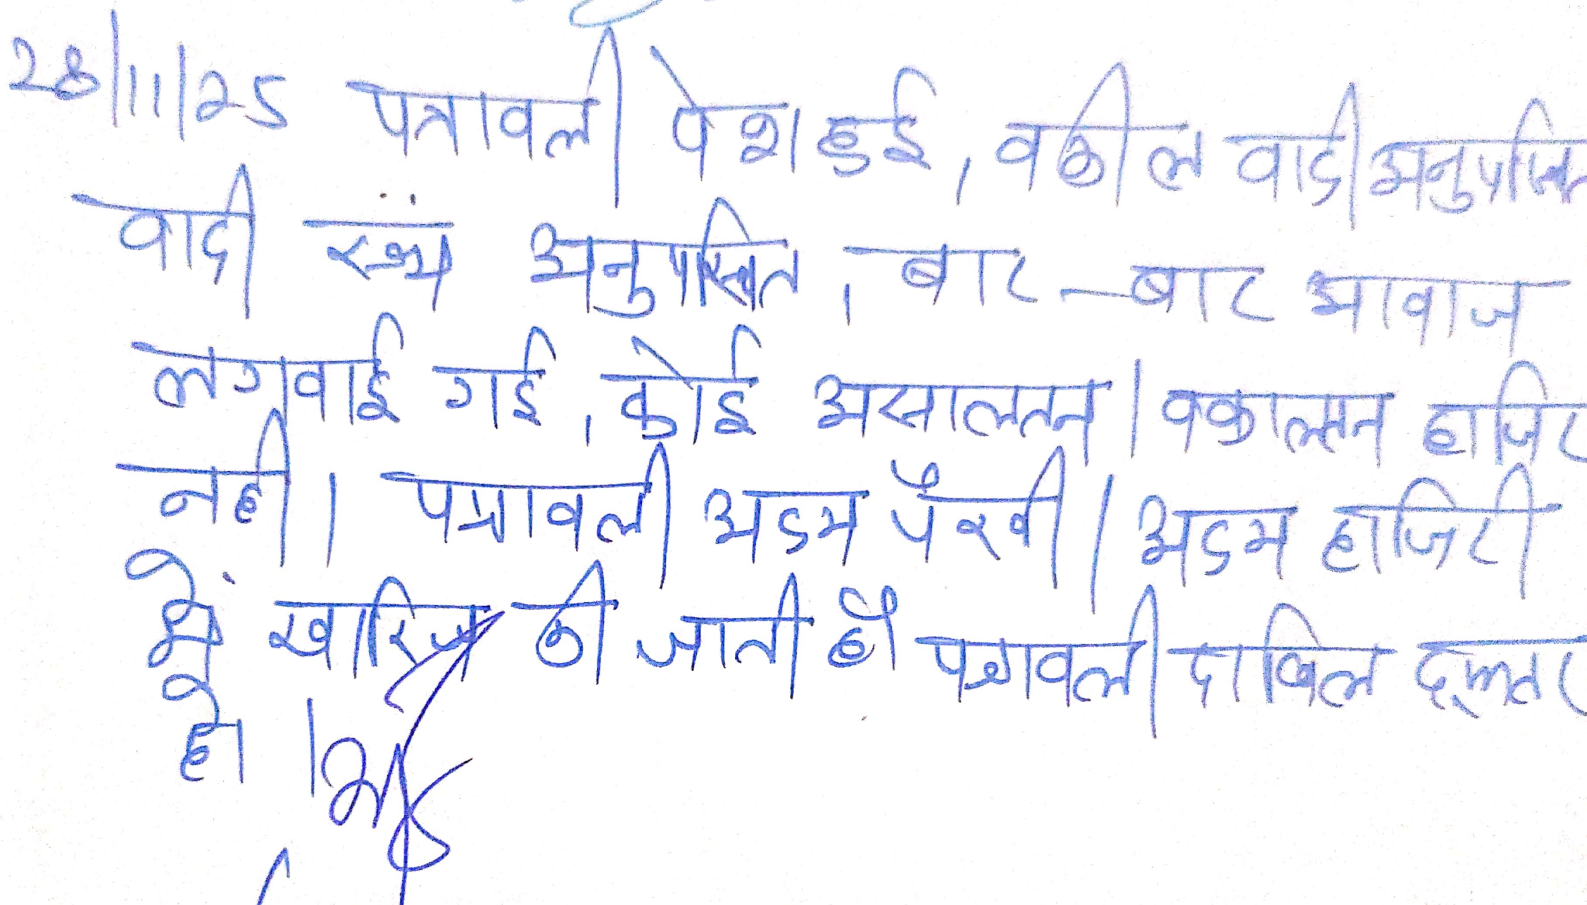 28/11/25 पत्रावली पेश हुई, वकील वादी अनुपस्थित
वादी स्वंय अनुपस्थित, बार-बार आवाज
लगवाई गई, कोई असालतन/वकालतन हाजिर
नही। पत्रावली अदम पैरवी/अदम हाजिरी
में खारिज की जाती है। पत्रावली दाखिल दफ्तर
हो।